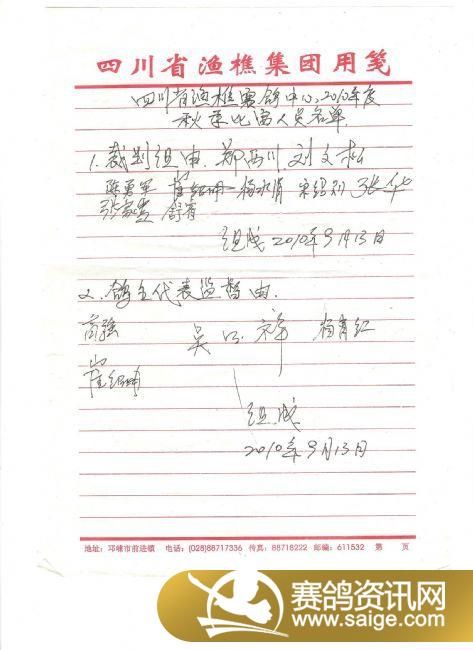 四川省渔樵集团用笺
四川省渔樵赛鸽中心2010年度
秋季比赛人员名单
1. 裁判组由 郑西川 刘文松
陈勇军 崔绍珊 杨永清 张华
张家贵 舒有
组成 2010年9月13日
2. 鸽主代表监督由
高强 吴 杨有红
崔绍珊
组成
2010年9月13日
地址：邛崃市前进镇 电话：(028)88717336 传真：88716222 邮编：611532 第 页
赛鸽资讯网
www.saige.com